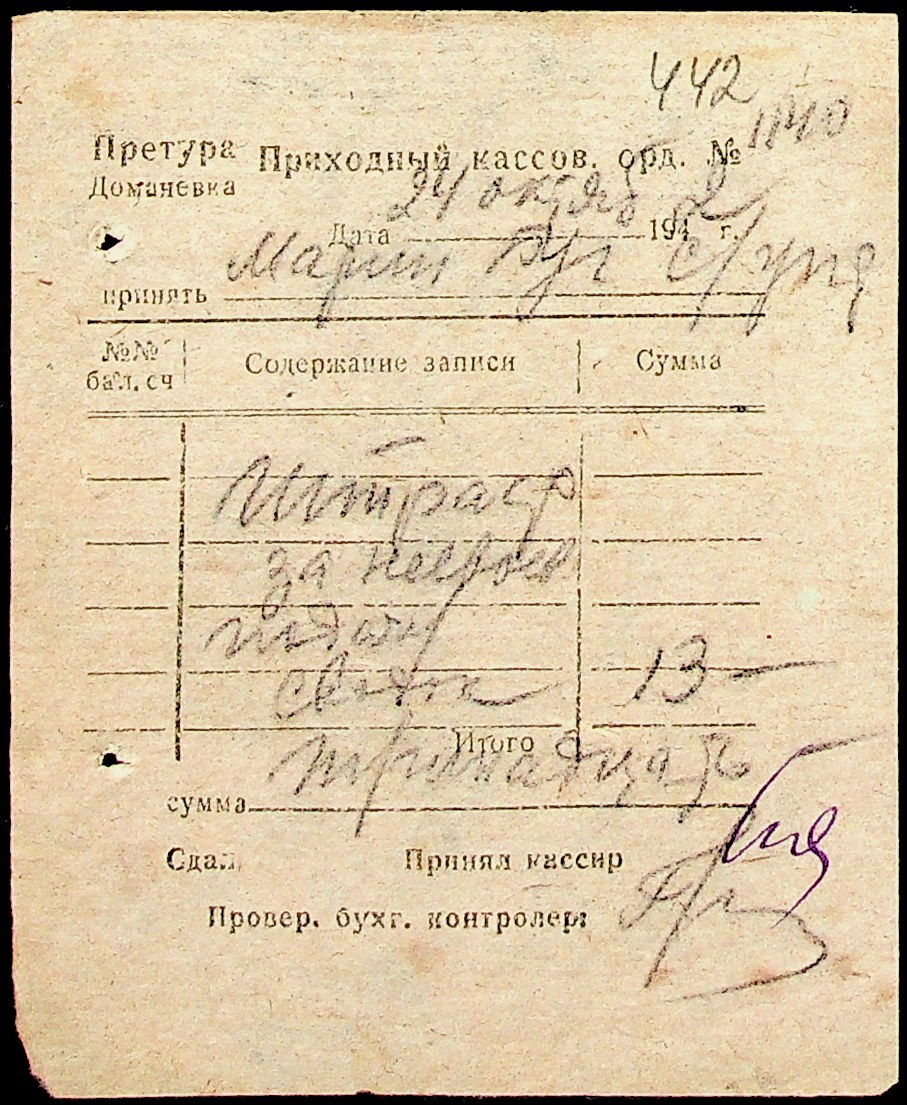 442
Претура
Доманевка
Приходный кассов. орд. № 1140
Дата 24 октяб 1942 г.
принять Мария с/упр
№№
бал. сч
Содержание записи
Сумма
Штраф
за несвоев
подачу
13 —
Итого
сумма тринадцать
Сдал
Принял кассир
Провер. бухг. контролер: